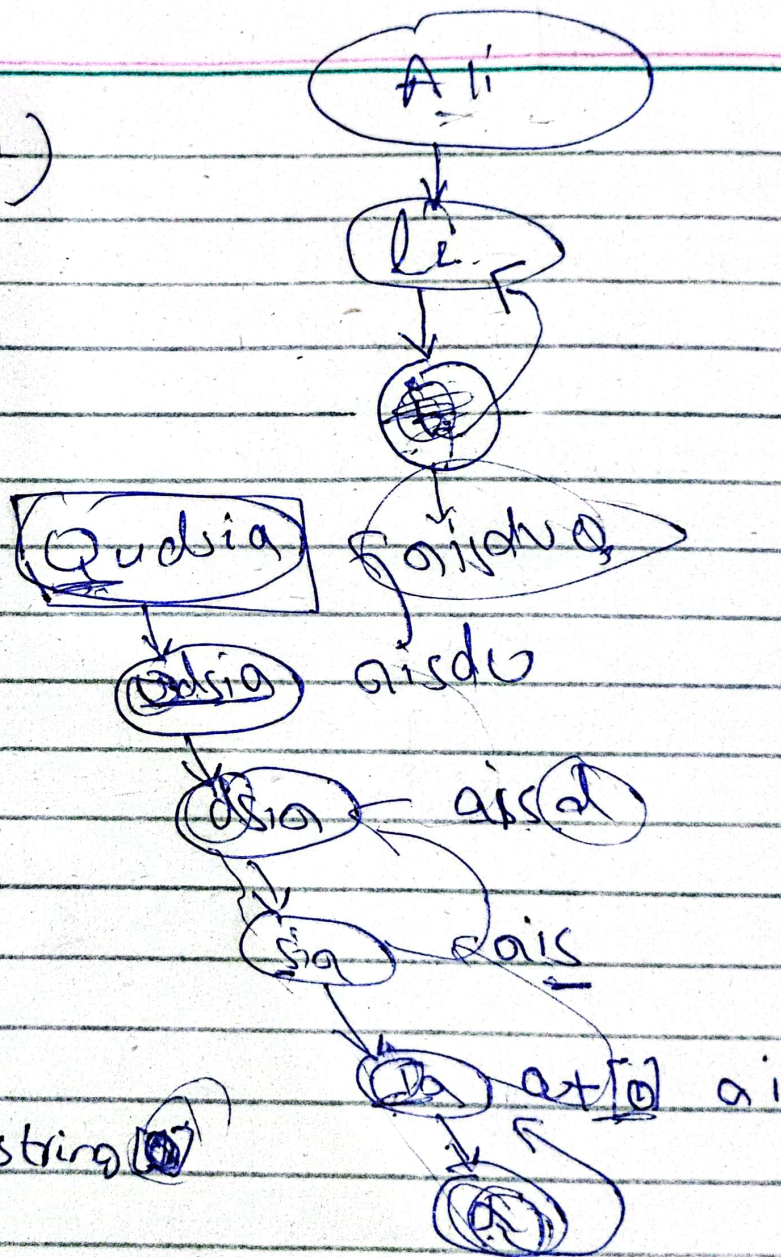 )
Ali
li
Qudsia aisduQ
udsia aisdu
dsia aisd
sia ais
ia a+[0] ai
string[0]